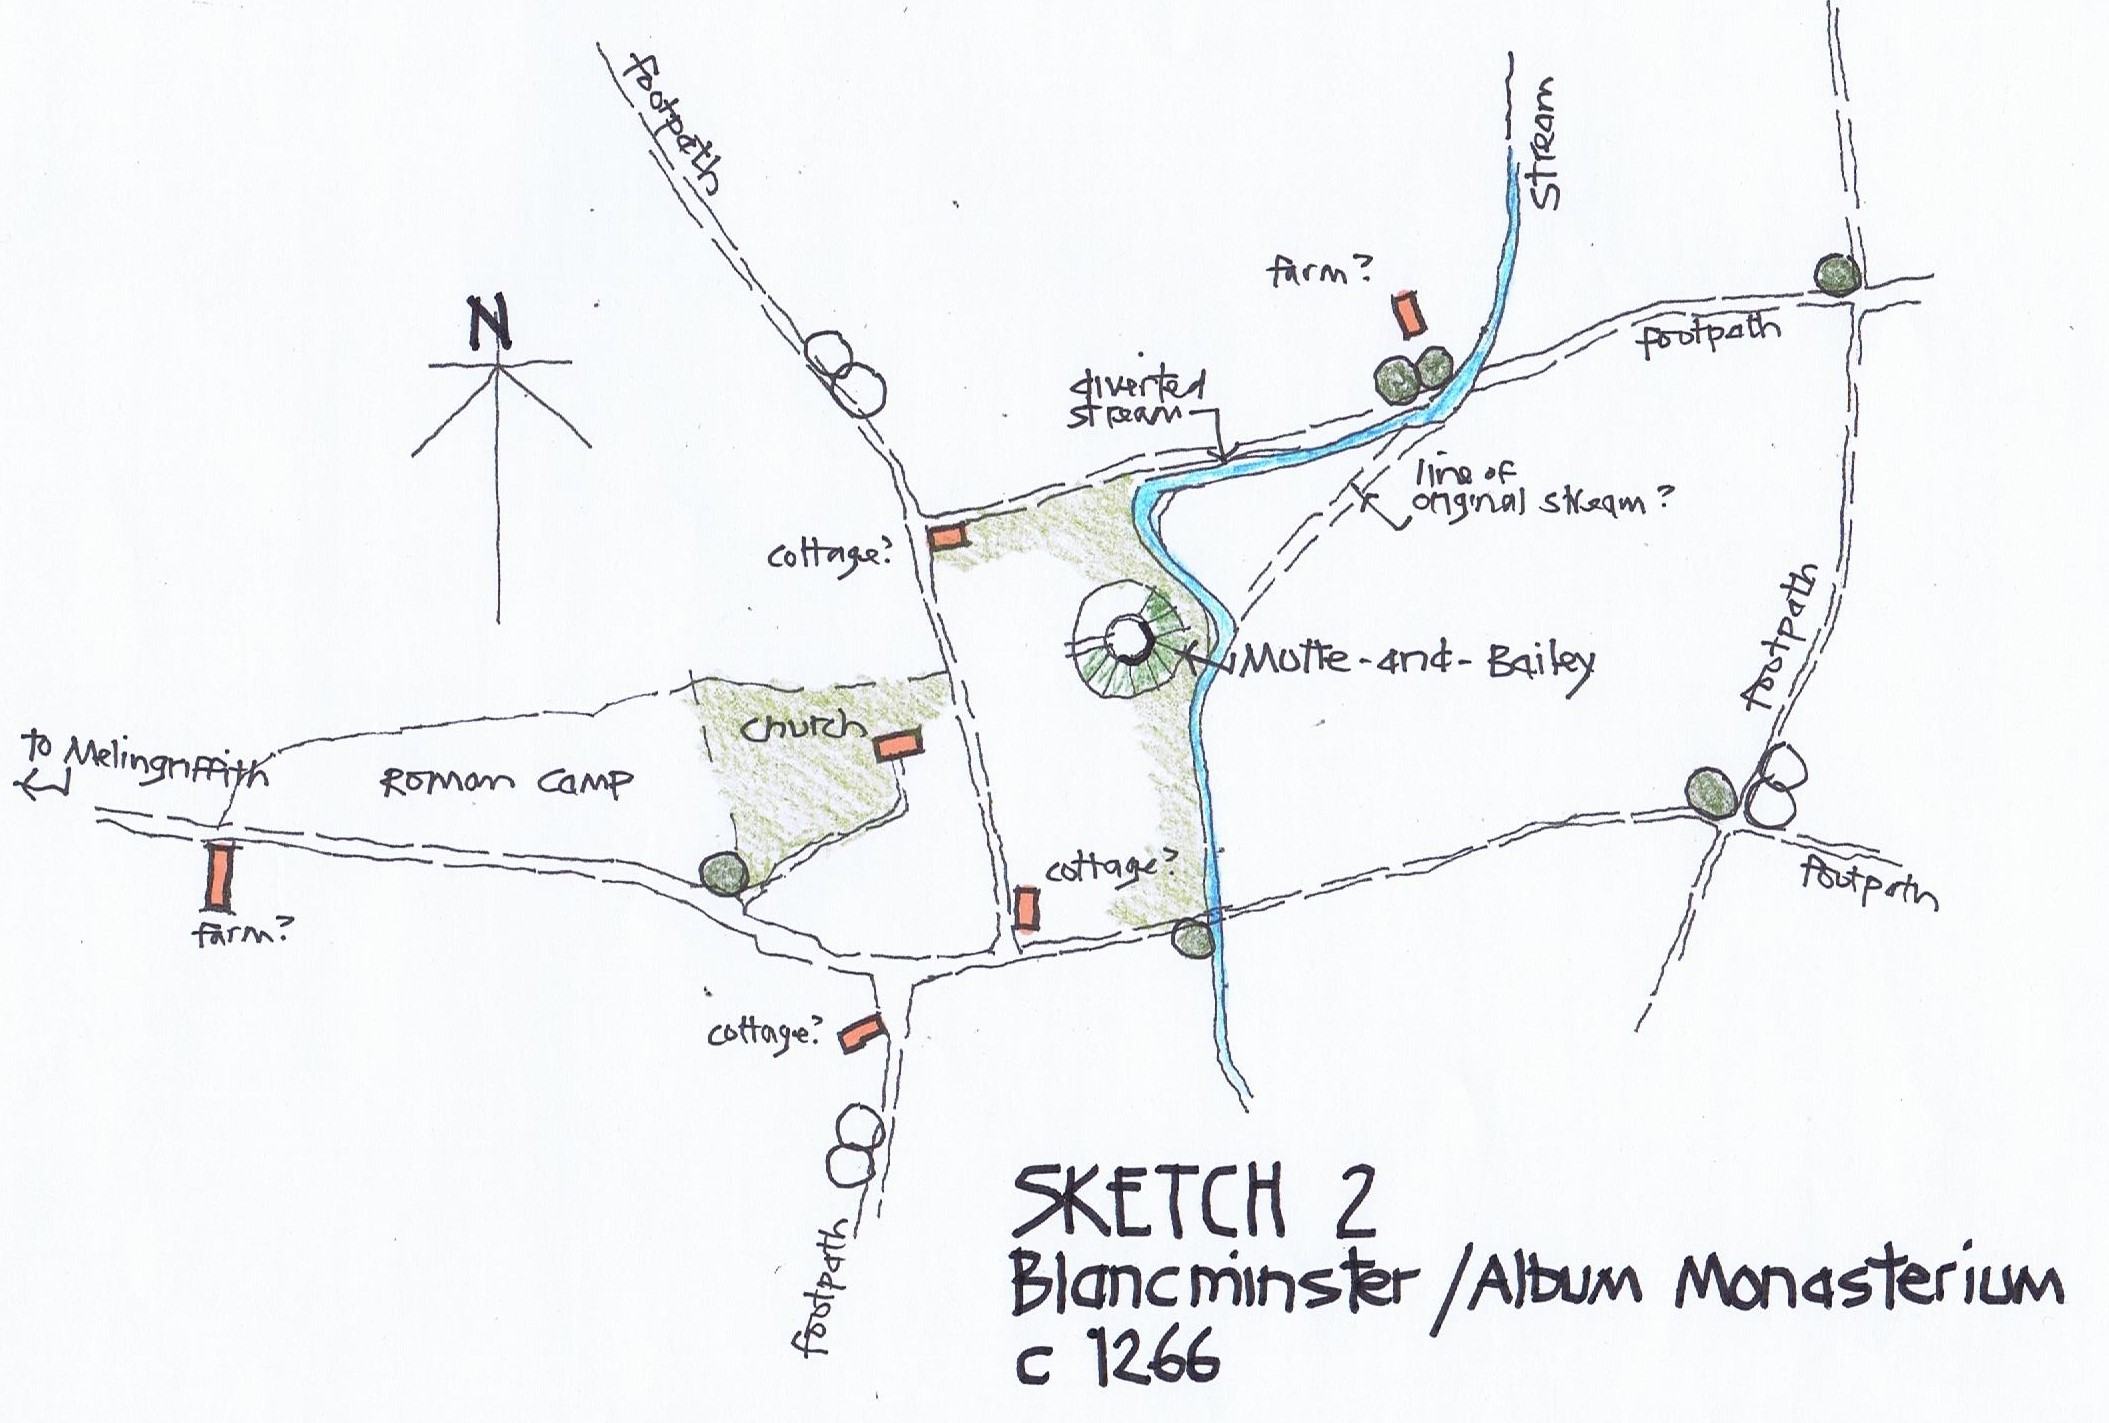 footpath
Stream
N
farm?
footpath
diverted
stream
line of
original stream?
cottage?
footpath
Motte-and-Bailey
church
to Melingriffith
Roman Camp
cottage?
footpath
farm?
cottage?
footpath
SKETCH 2
Blancminster/Album Monasterium
c 1266